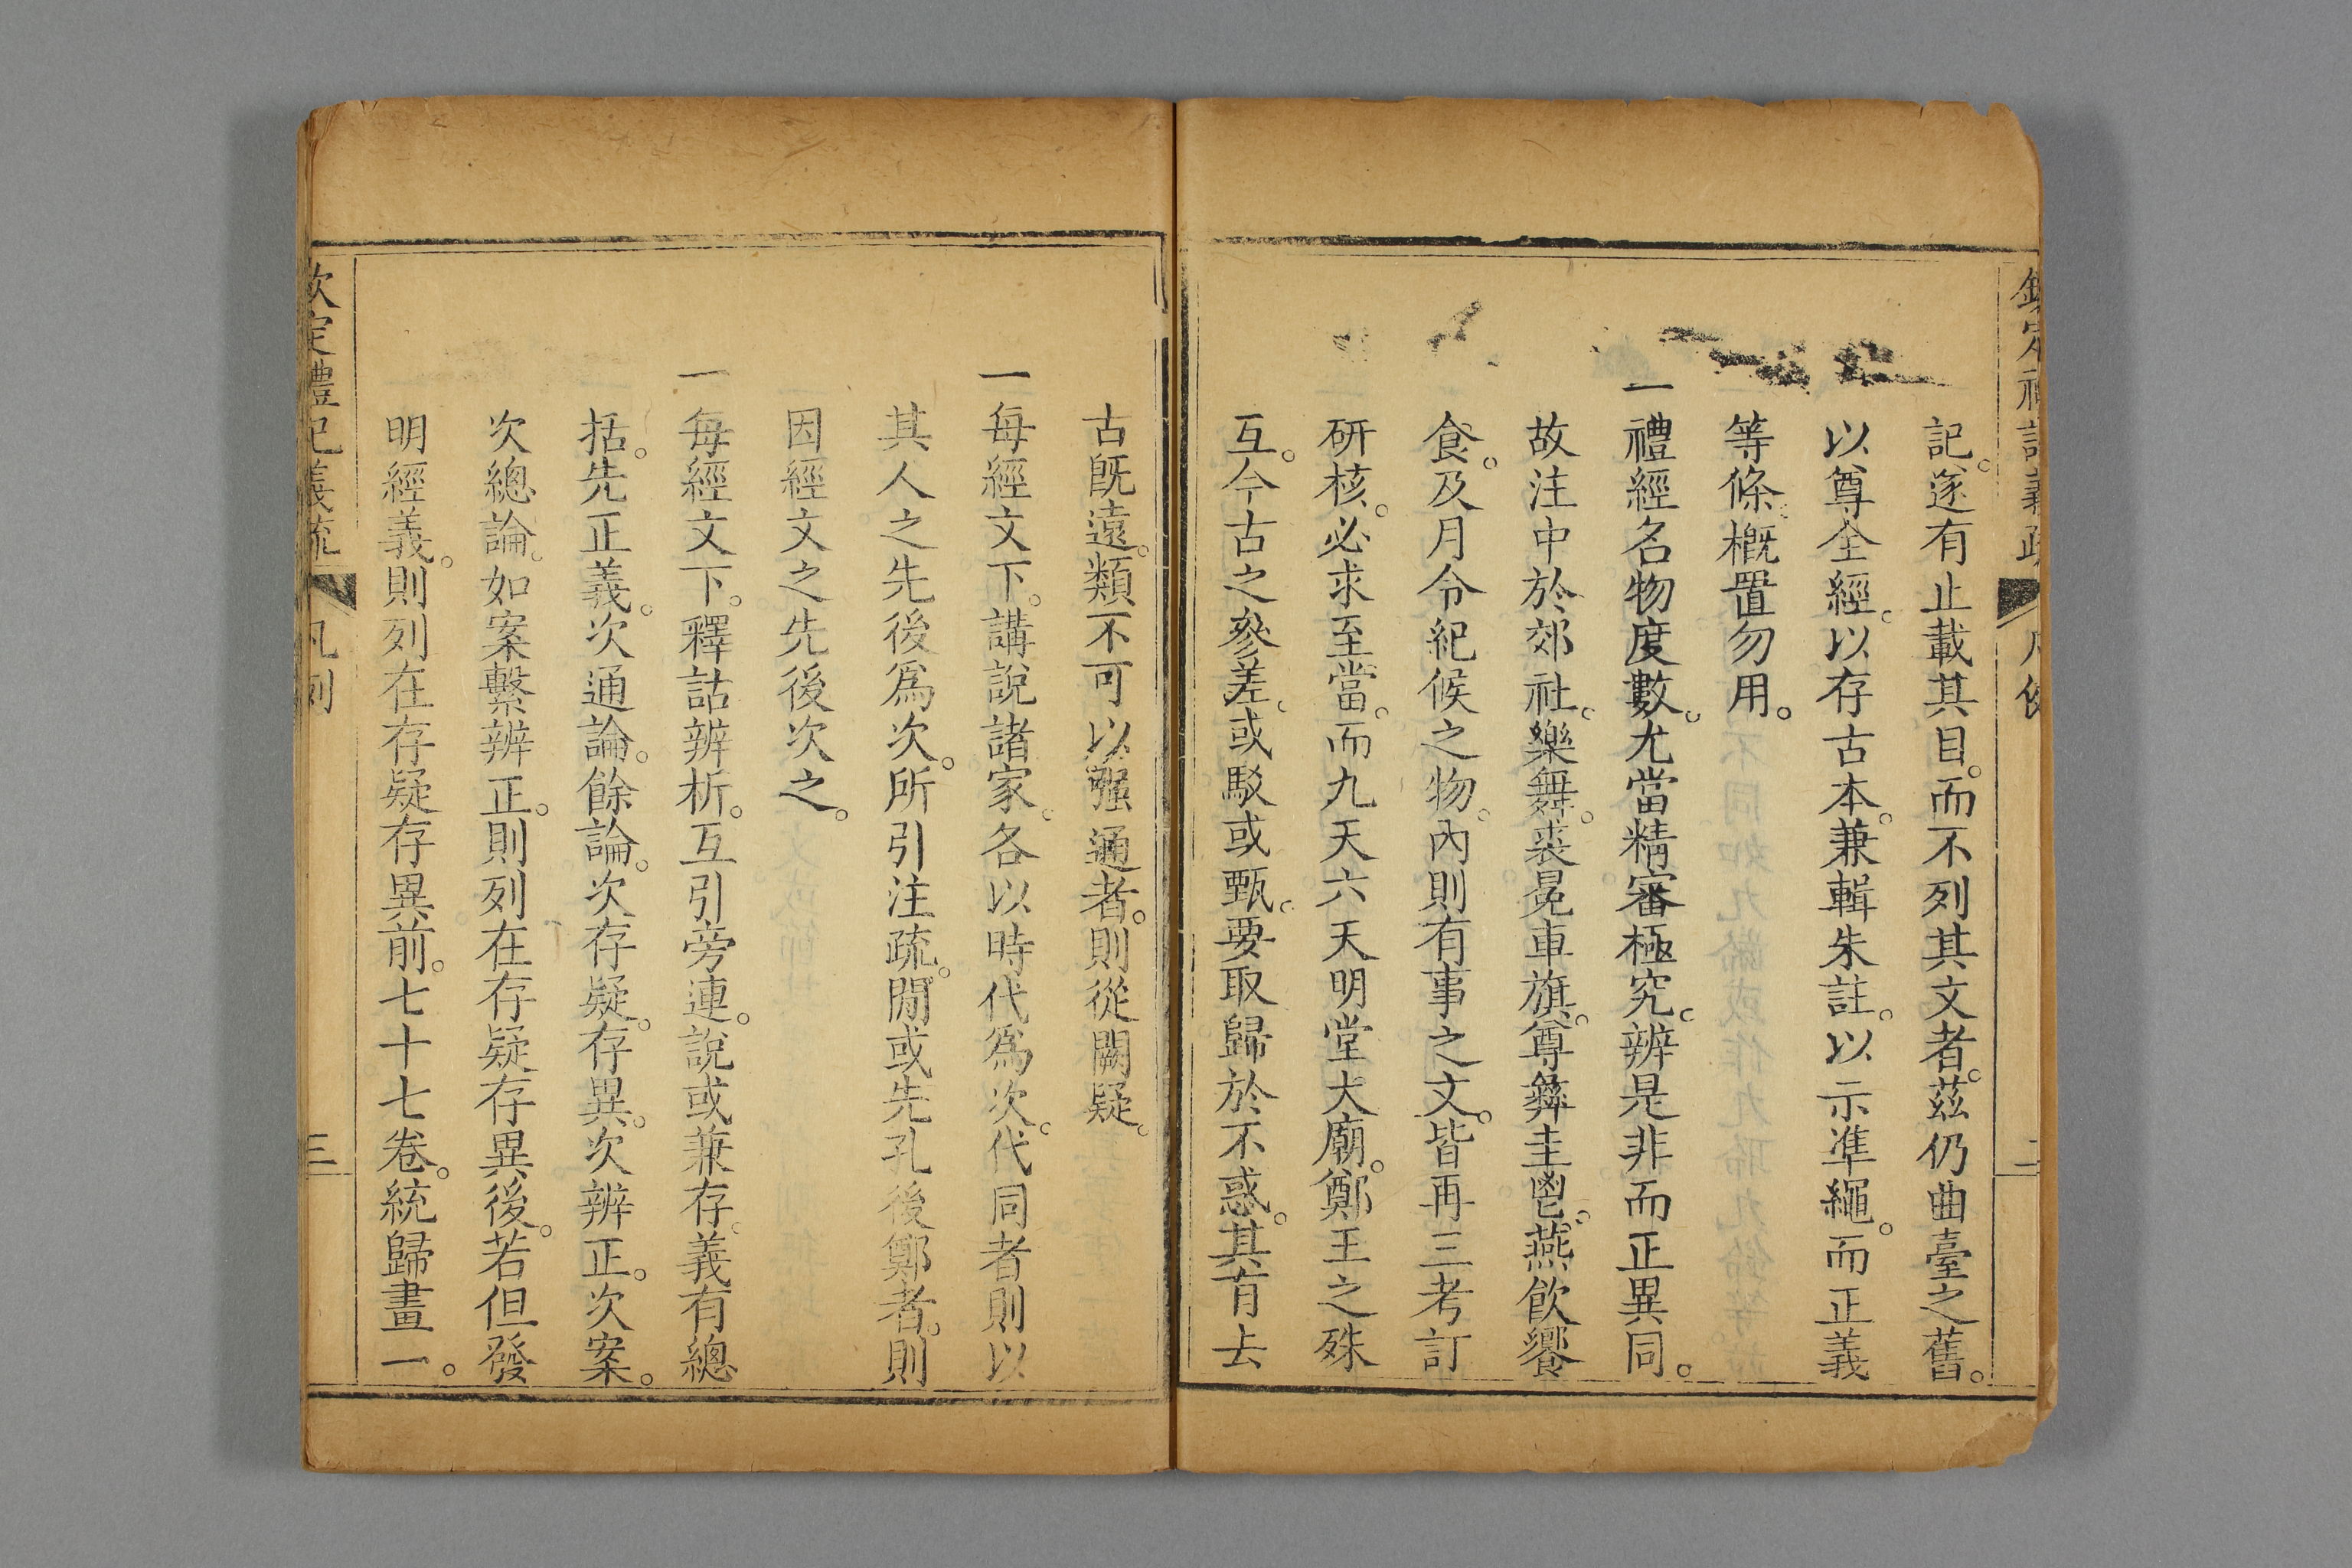 欽定禮記義疏 凡例 二
記。遂有止載其目。而不列其文者。茲仍曲臺之舊。
以尊全經。以存古本。兼輯朱註。以示準繩。而正義
等條。槪置勿用。
一禮經名物度數。尤當精審極究。辨是非而正異同。
故注中於郊社。樂舞。裘冕車旗。尊彝圭鬯。燕飲饗
食。及月令紀候之物。內則有事之文。皆再三考訂
研核。必求至當。而九天六天明堂大廟。鄭王之殊
互。今古之參差。或駁或甄。要取歸於不惑。其有去
古旣遠。類不可以强通者。則從闕疑。
一每經文下。講說諸家。各以時代爲次。代同者則以
其人之先後爲次。所引注疏。間或先孔後鄭者。則
因經文之先後次之。
一每經文下。釋詁辨析。互引旁連。說或兼存。義有總
括。先正義。次通論。餘論。次存疑。存異。次辨正。次案。
次總論。如案繫辨正。則列在存疑存異後。若但發
明經義。則列在存疑存異前。七十七卷。統歸畫一。
欽定禮記義疏 凡例 三